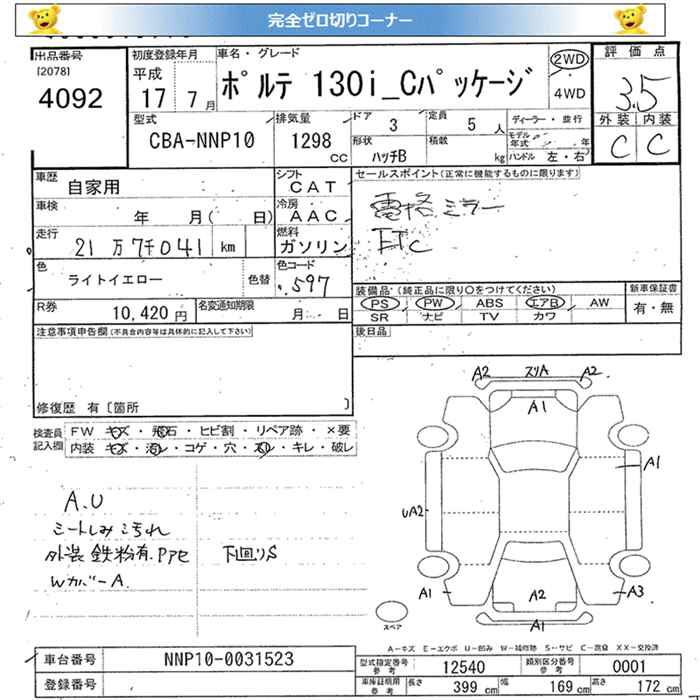 完全ゼロ切りコーナー
出品番号
[2078]
4092
初度登録年月
平成
17 7月
車名・グレード
ポルテ 130i_Cパッケージ
2WD
4WD
評価点
3.5
外装 内装
C C
型式
CBA-NNP10
排気量
1298
CC
ドア
3
定員
5
人
形状
ハッチB
積載
kg
ディーラー・並行
モデル年式 年
ハンドル 左・右
車歴
自家用
シフト
CAT
車検
年 月( 日)
冷房
AAC
走行
21万7千041 km
燃料
ガソリン
色
ライトイエロー
色替
色コード
597
R券
10,420円
名変通知期限
月 日
セールスポイント(正常に機能するものに限ります)
電格ミラー
ETC
装備品(純正品に限り○をつけてください)
PS PW ABS エアB AW
SR ナビ TV カワ
新車保証書
有・無
注意事項申告欄(不具合内容等は具体的に記入して下さい)
後日品
修復歴 有〔箇所 〕
検査員記入欄
FW キズ・飛石・ヒビ割・リペア跡・×要
内装 キズ・汚レ・コゲ・穴・スレ・キレ・破レ
A.U
シートしみ汚れ
外装鉄粉有.
Wカバー A.
下回りS
A2 スリA A2
A1
A1
UA2
A1 A2 A3
A1
スペア
A-キズ E-エクボ U-凹み W-補修跡 S-サビ C-腐食 XX-交換済
車台番号
NNP10-0031523
登録番号
型式指定番号
参考
12540
類別区分番号
参考
0001
車庫証明用
参考
長さ
399 cm
幅
169 cm
高さ
172 cm